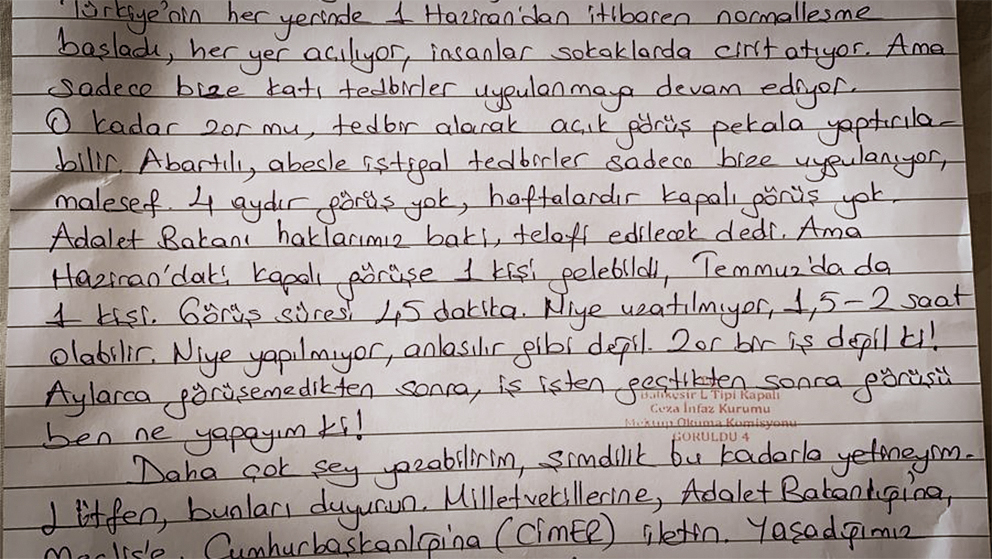 Türkiye'nin her yerinde 1 Haziran'dan itibaren normalleşme
başladı, her yer açılıyor, insanlar sokaklarda cirit atıyor. Ama
sadece bize katı tedbirler uygulanmaya devam ediyor.
O kadar zor mu, tedbir alarak açık görüş pekala yaptırıla-
bilir. Abartılı, abesle iştigal tedbirler sadece bize uygulanıyor,
malesef. 4 aydır görüş yok, haftalardır kapalı görüş yok.
Adalet Bakanı haklarımız baki, telafi edilecek dedi. Ama
Haziran'daki kapalı görüşe 1 kişi gelebildi, Temmuz'da da
1 kişi. Görüş süresi 45 dakika. Niye uzatılmıyor, 1,5-2 saat
olabilir. Niye yapılmıyor, anlaşılır gibi değil. Zor bir iş değil ki!
Aylarca görüşemedikten sonra, iş işten geçtikten sonra görüşü
ben ne yapayım ki!
Balıkesir L Tipi Kapalı
Ceza İnfaz Kurumu
Mektup Okuma Komisyonu
GÖRÜLDÜ 4
Daha çok şey yazabilirim, şimdilik bu kadarla yetineyim.
Lütfen, bunları duyurun. Milletvekillerine, Adalet Bakanlığı'na,
Meclis'e, Cumhurbaşkanlığına (CİMER) iletin. Yaşadığımız